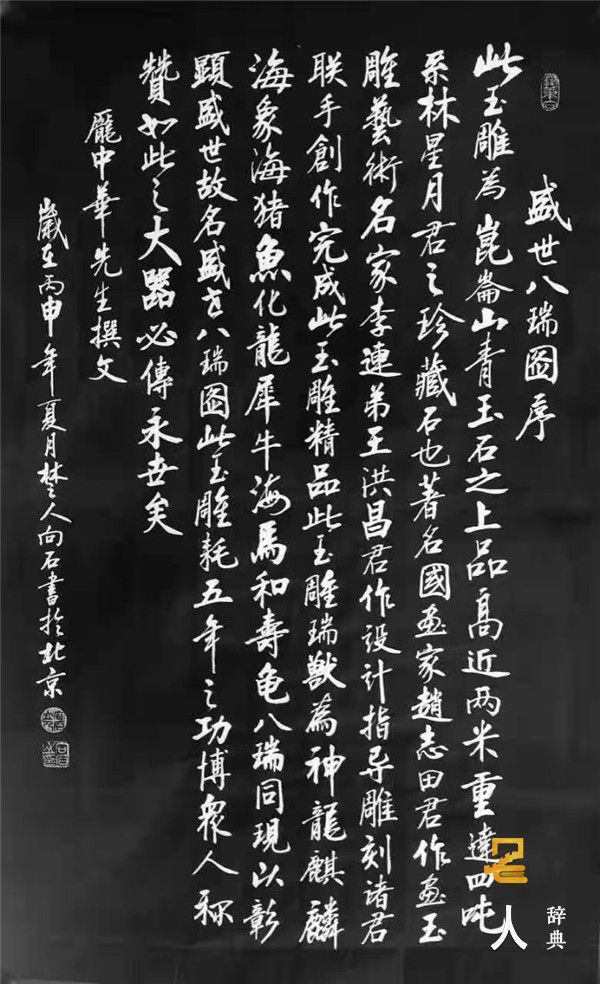 盛世八瑞图序
此玉雕為崑崙山青玉石之上品高近两米重達四吨
系林星月君之珍藏石也著名國画家趙志田君作画玉
雕藝術名家李連弟王洪昌君作设计指导雕刻诸君
联手創作完成此玉雕精品此玉雕瑞獸為神龍麒麟
海象海猪魚化龍犀牛海馬和壽龟八瑞同現以彰
顕盛世故名盛世八瑞图此玉雕耗五年之功博衆人称
贊如此之大器必傳永世矣
龐中華先生撰文
歲在丙申年夏月楚人向石書於北京
人
辞典